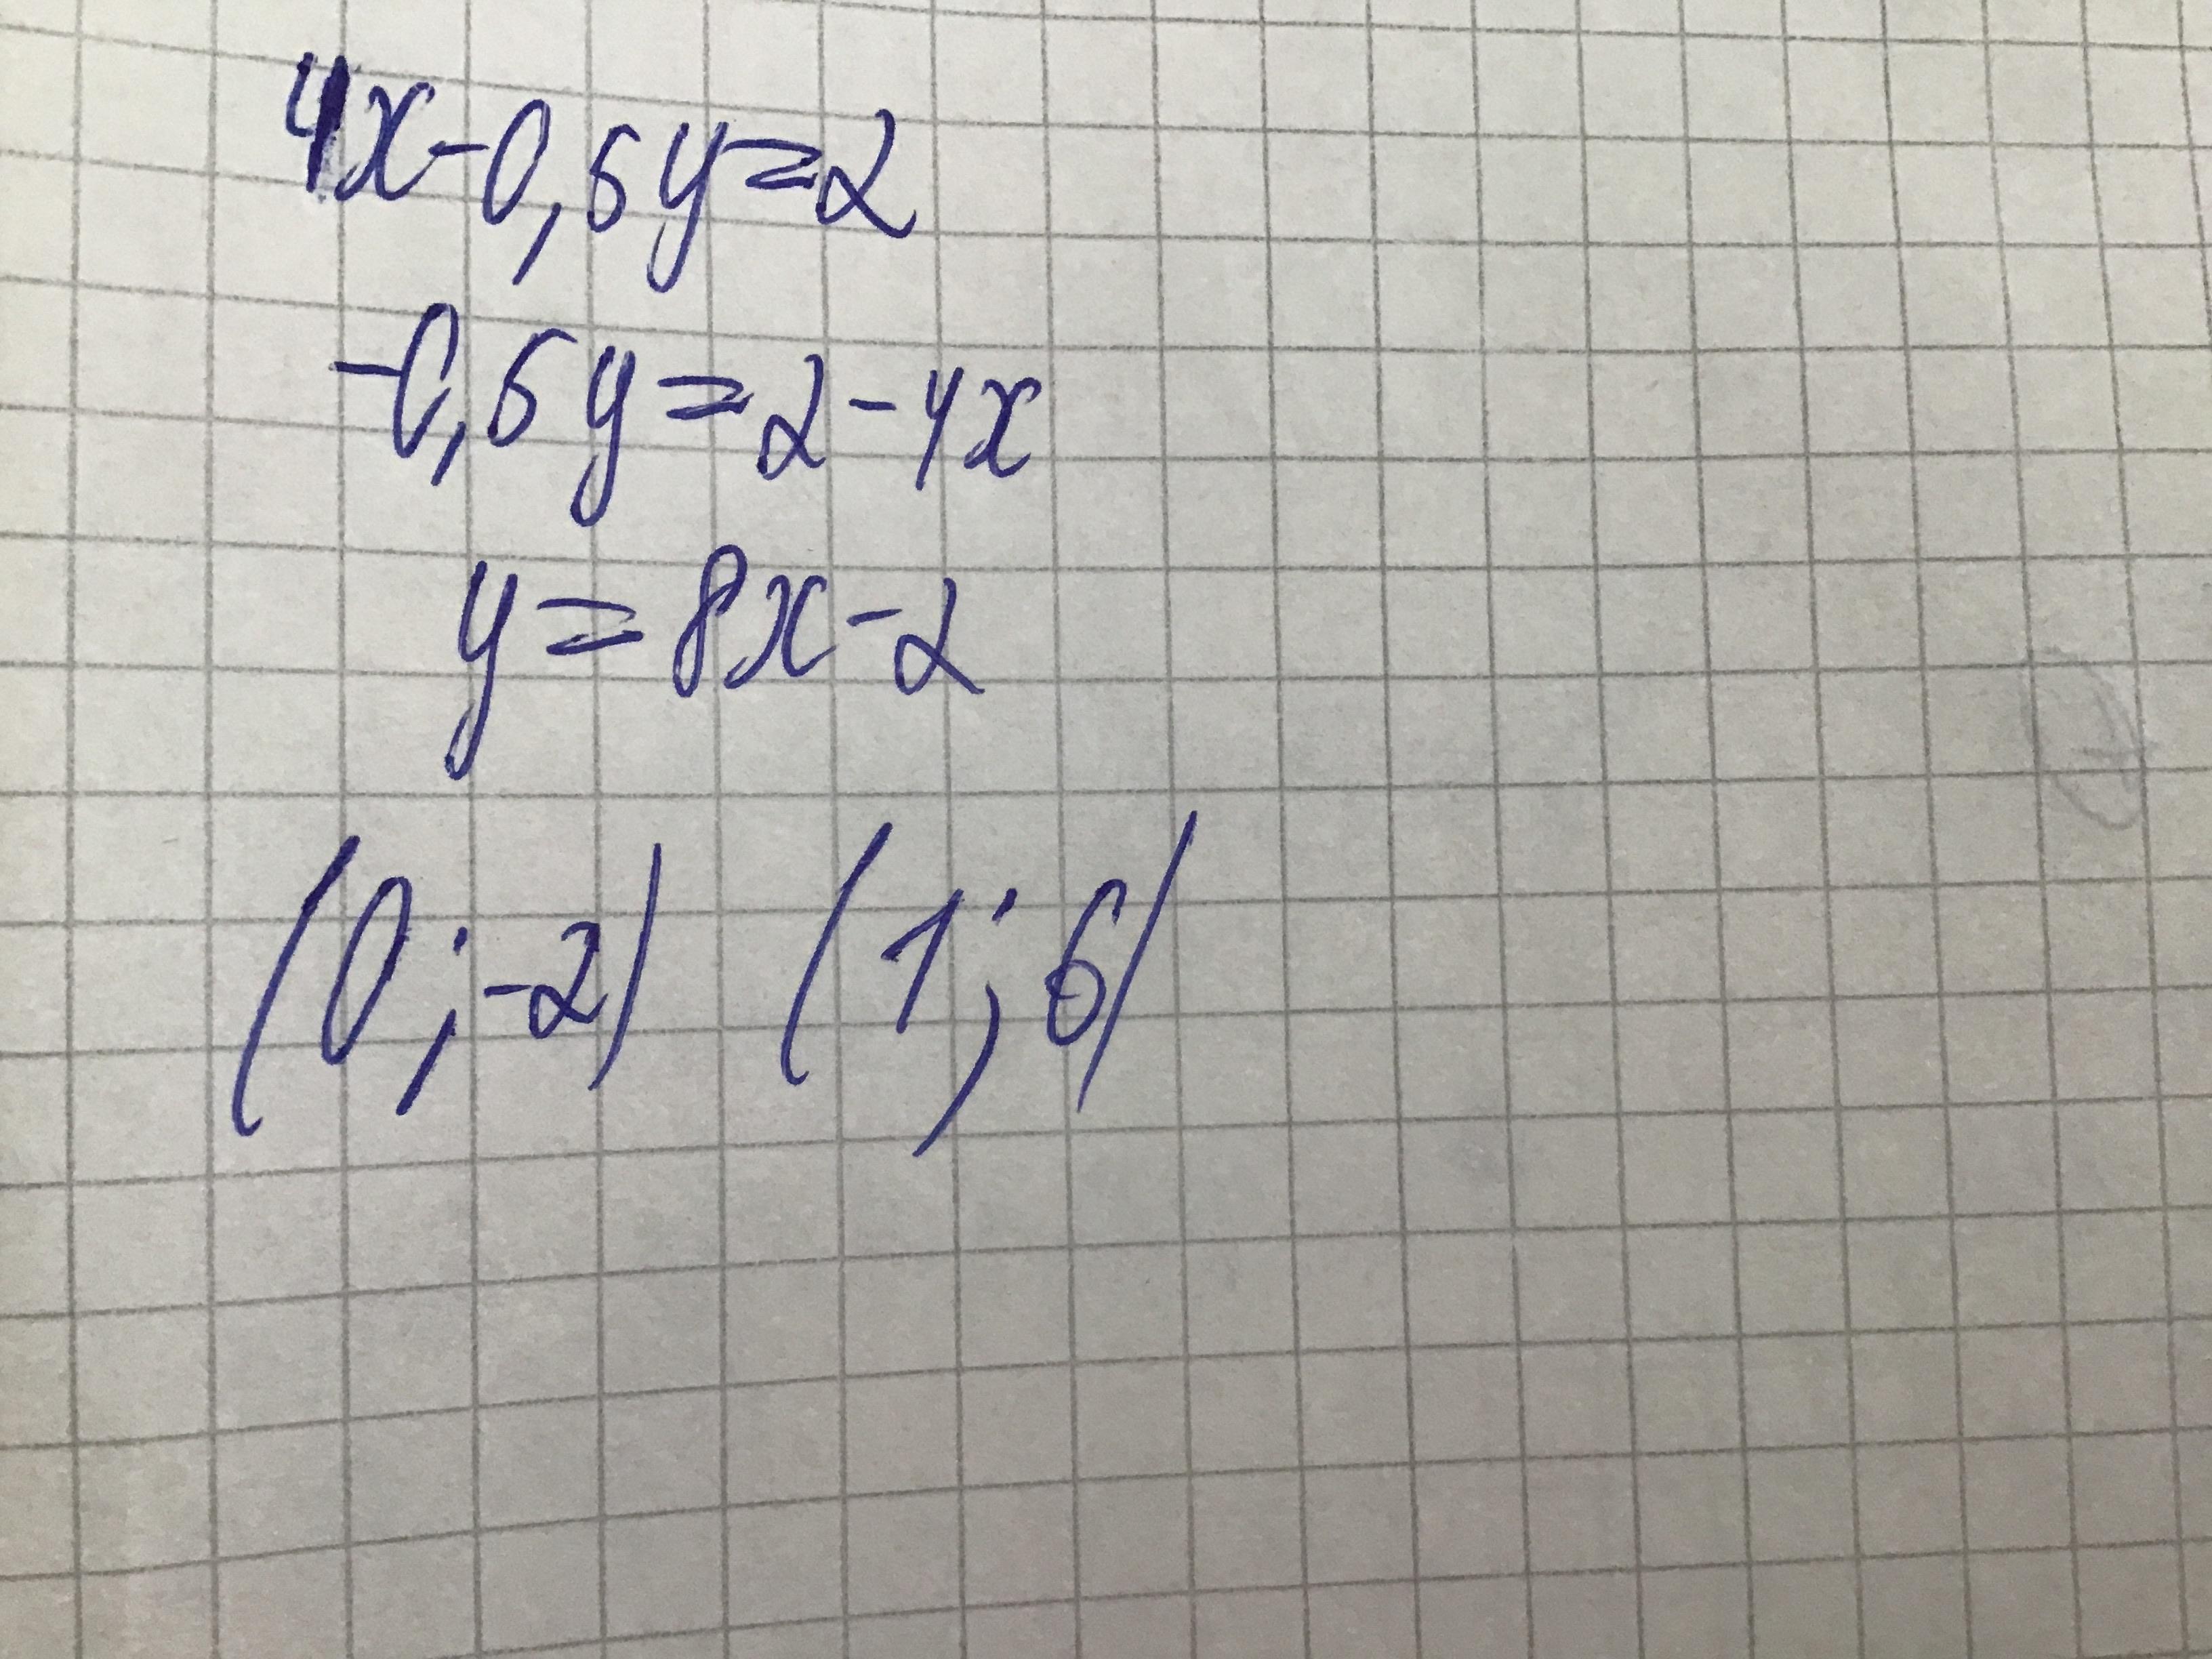 4x-0,5y=2
-0,5y=2-4x
y=8x-2
(0;-2) (1;6)